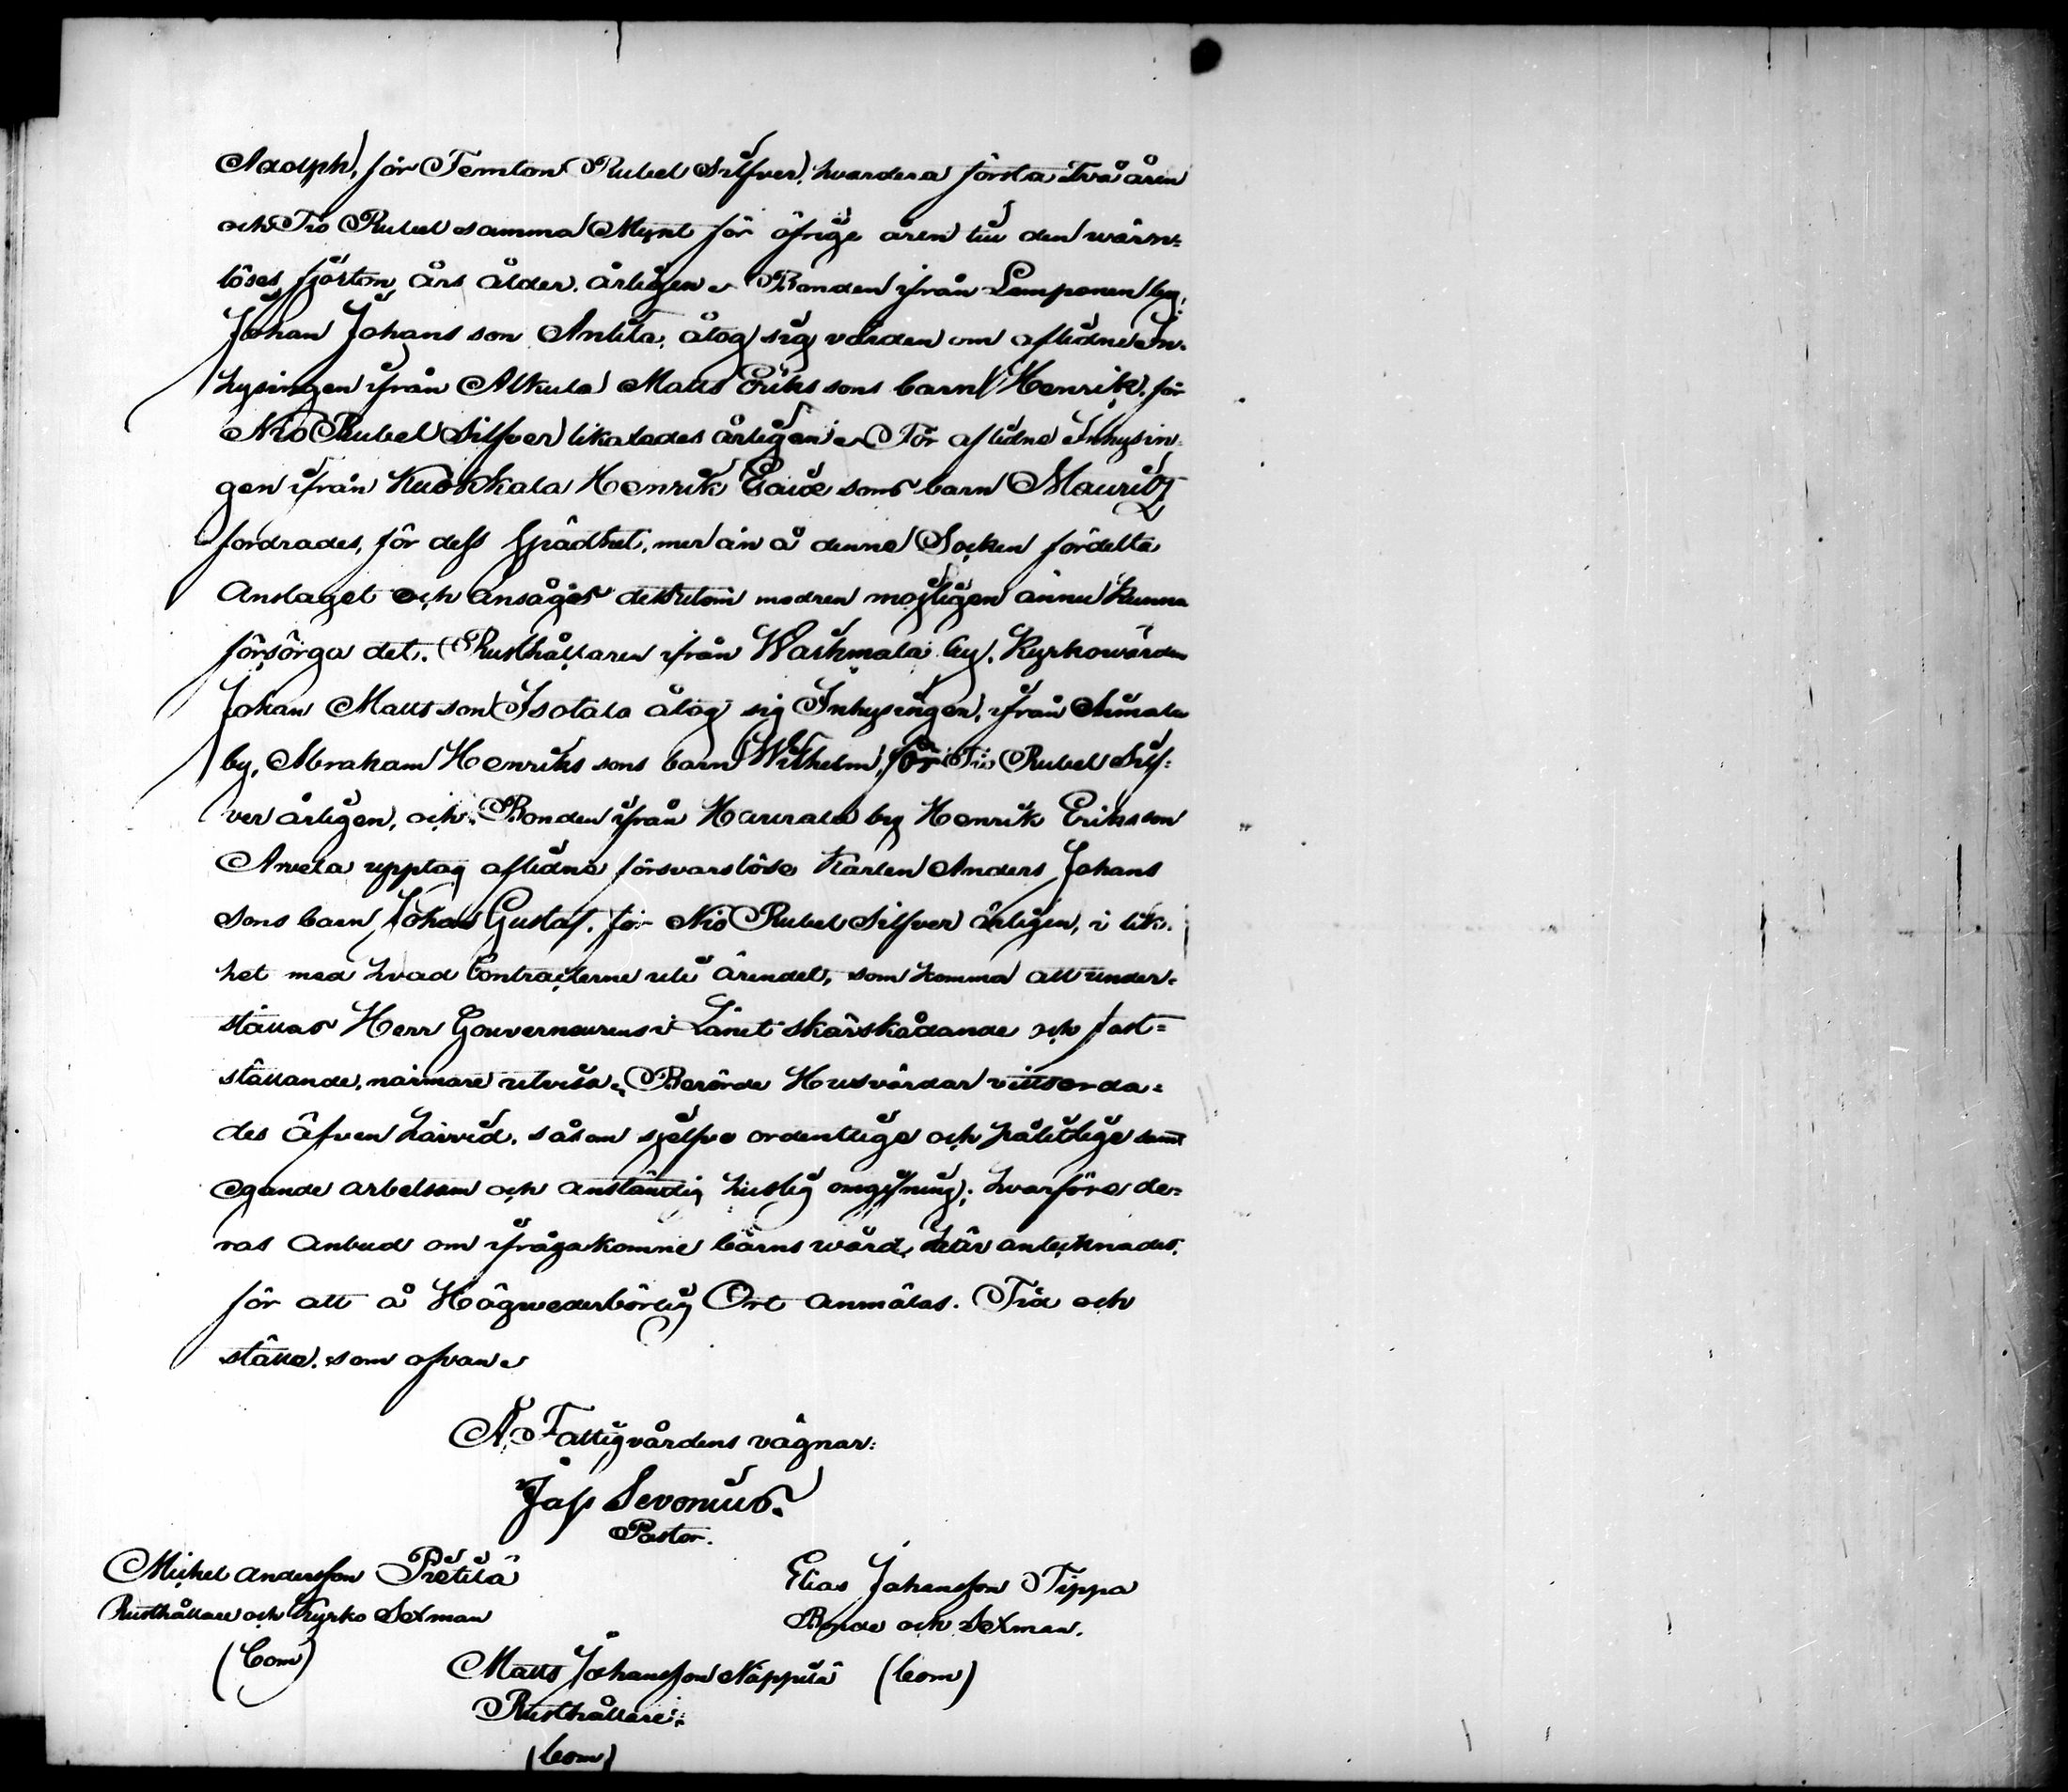 Adolph, för Femton Rubel Silfver, hvardera första Två åren
och Tio Rubel samma Mynt för öfrige åren till den wärn-
löses fjorton års ålder. årligen. Bonden ifrån Lemponen by,
Johan Johans son Anttila, åtog sig vården om aflidne In-
hysingen ifrån Alkula Matts Eriks sons barn Henrik, för
Nio Rubel Silfver likaledes årligen. För aflidne Inhysin-
gen ifrån Kuokkala Henrik Esaiæ sons barn Mauritz
fordrades, för dess spädhet, mer än å denne Socken fördelta
Anslaget och ansågs dessutom modren möjligen ännu kunna
försörja det. Rusthållaren ifrån Washmala by, Kyrkowärden
Johan Matts son Isotalo åtog sig Inhysingen, ifrån Aimala
by, Abraham Henriks sons barn Wilhelm, för Tio Rubel Silf-
ver årligen, och Bonden ifrån Haurala by Henrik Eriksson
Anvela upptog aflidne försvarslöse Karlen Anders Johans
sons barn Johan Gustaf, för Nio Rubel Silfver årligen, i lik-
het med hvad Contracterne uti ärendet, som komma att under-
ställas Herr Gouverneurens i Länet skärskådande och fast-
ställande, närmare utvisa. Berörde Husvärdar vittsorda-
des äfven härvid, såsom sjelfve ordentlige och pålitlige samt
egande arbetsam och anständig huslig omgifning; hvarföre de-
ras anbud om ifrågakomne barns wård, här antecknades,
för att å Högwederbörlig Ort anmälas. Tid och
ställe, som ofvan.
Å Fattigvårdens vägnar:
Jos. Sevonius.
Pastor.
Michel Andersson Pietilä
Elias Johansson Tippa
Rusthållare och Kyrko Sexman
Bonde och Sexman.
(bom)
Matts Johansson Näppilä (bom)
Rusthållare.
(bom)